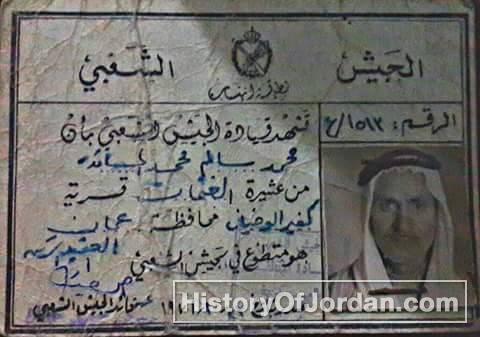 الجَيش الشَعبي
بطاقة انتساب
الرقم: ١٥١٣/ع
تشهد قيادة الجيش الشعبي بأن
محمد سالم محمد
من عشيرة الغنمات قرية
كفير الوخيان محافظة عمان
هو متطوع في الجيش الشعبي
التاريخ
قائد الجيش الشعبي
HistoryOfJordan.com